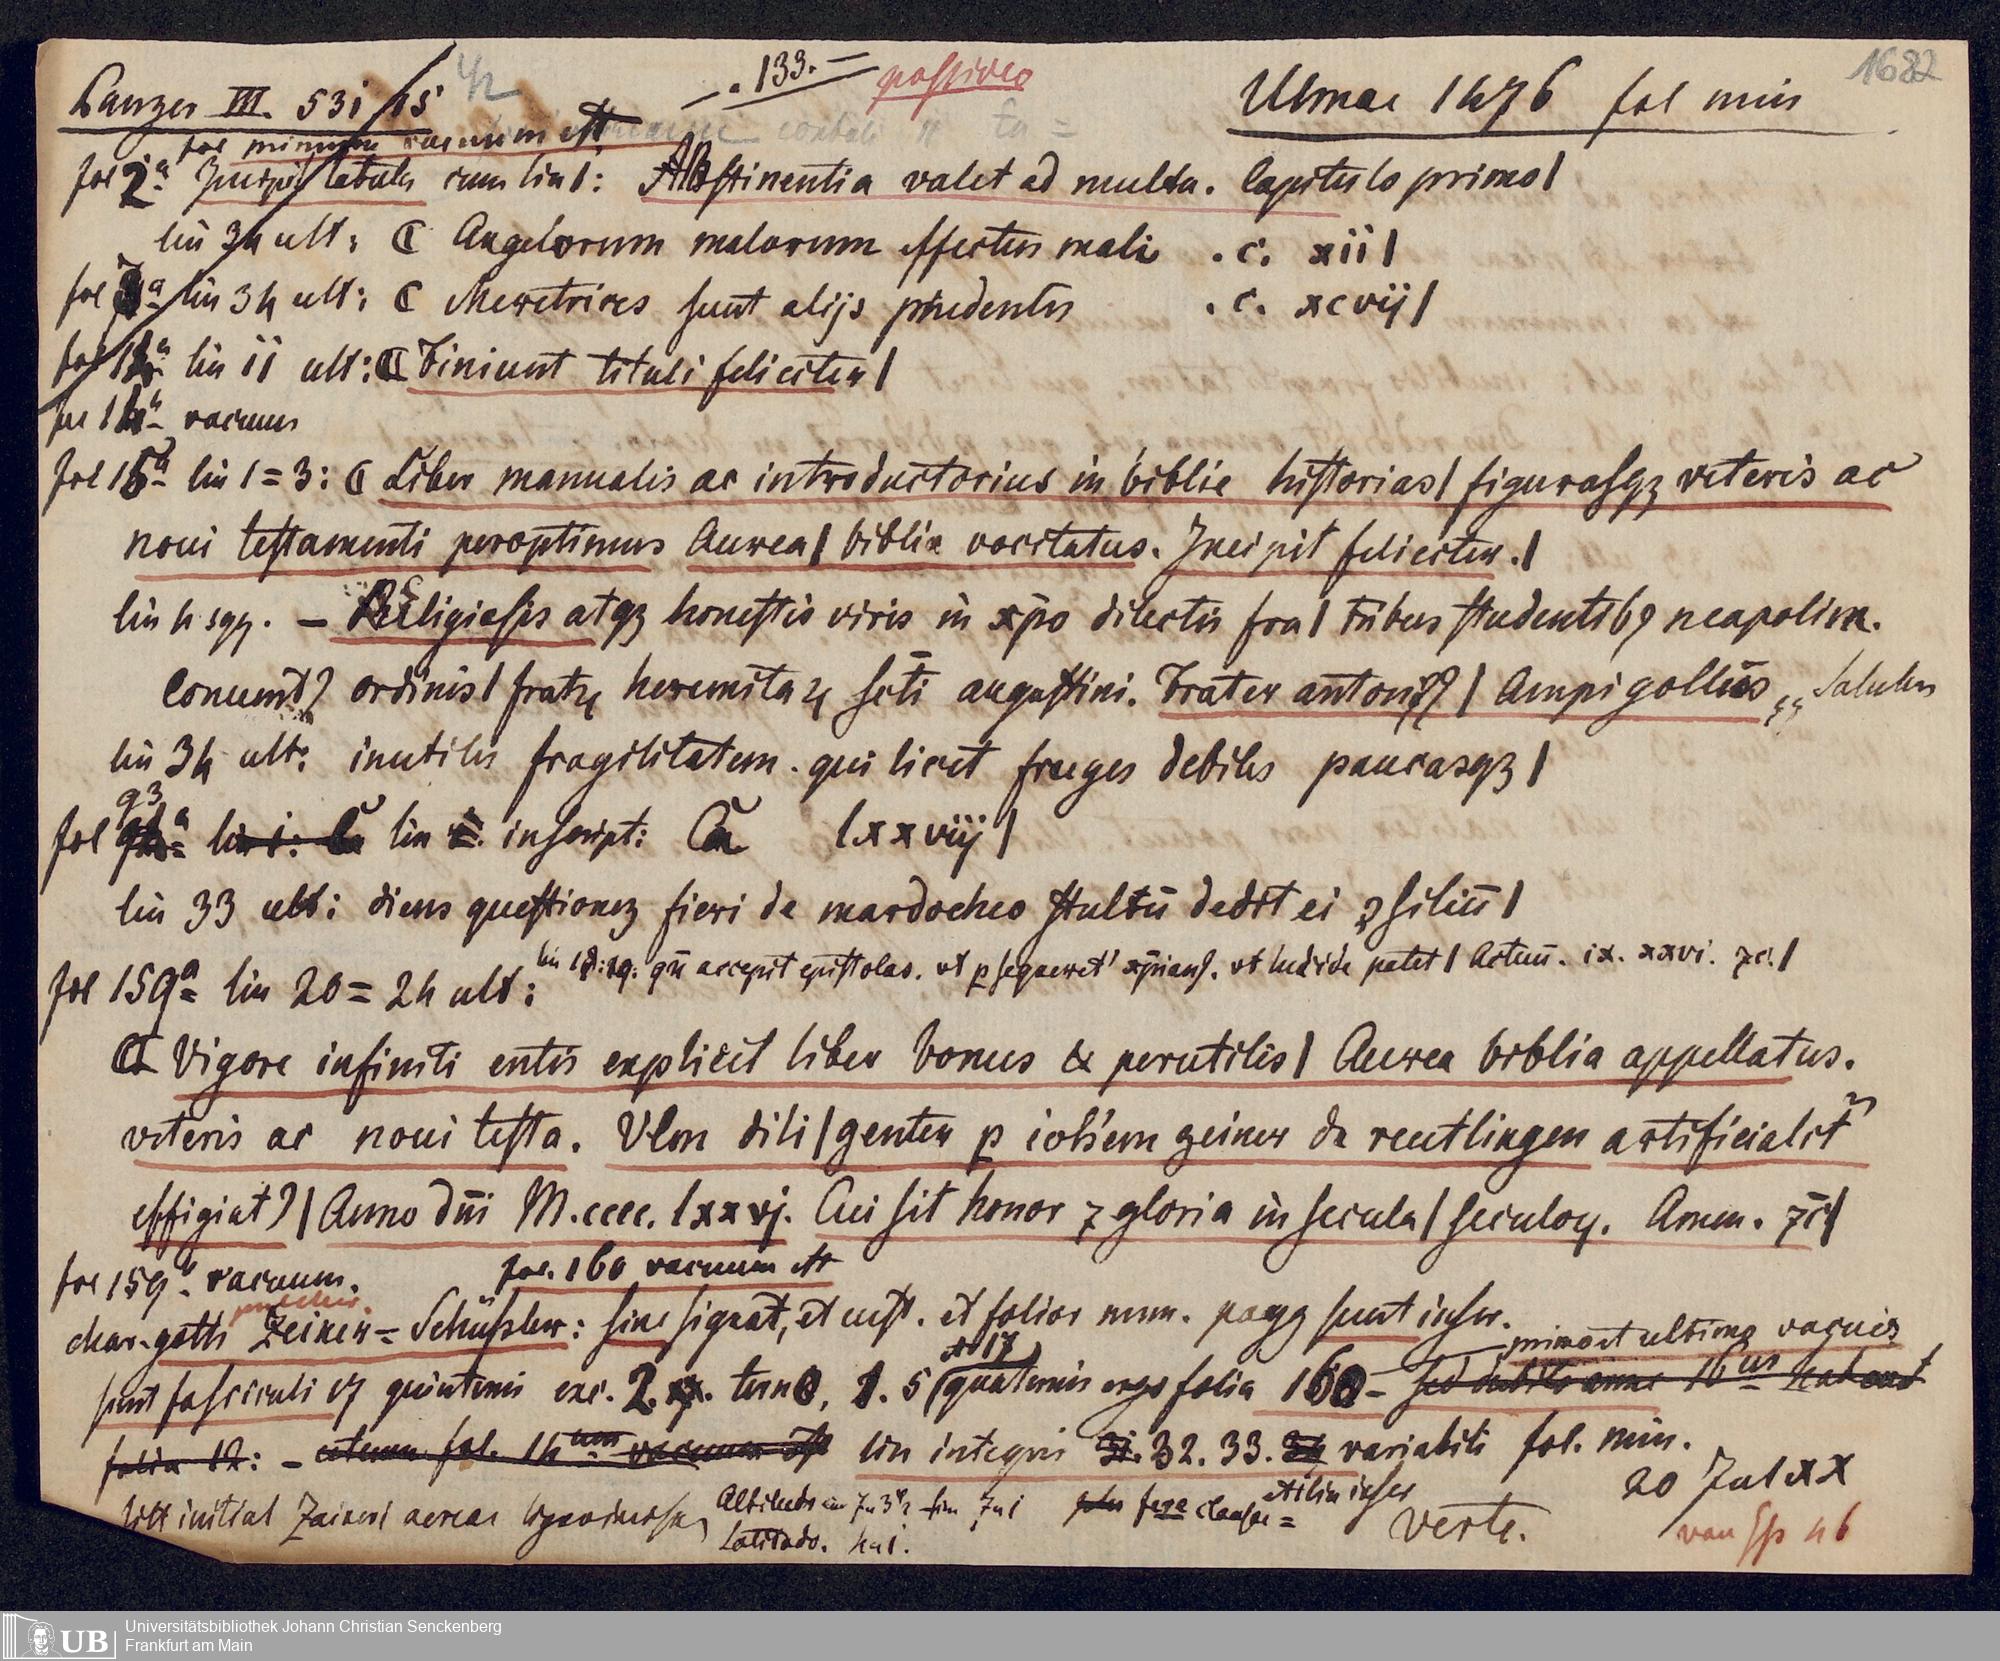 Panzer III. 531/15
133.-
possideo
Ulmae 1476 fol min
1682
fol primum vacuum est
fol 2a Incipit tabula cum lin 1: ABstinentia valet ad multa. Capitulo primo|
lin 34 ult: C Angelorum malorum effectus mali . c. xii|
fol 3a lin 34 ult: C Meretrices sunt alijs prudentes . c. xcvij|
lin 11 ult: C Finiunt tituli feliciter|
vacuus
fol 15a lin 1=3: C Liber manualis ac introductorius in biblie historias| figurasqz veteris ac
noui testamenti peroptimus Aurea| biblia vocitatus. Incipit feliciter.|
lin 4 sqq. - Religiosis atqz honestis viris in xpo dilectis fra| tribus studentib9 neapolim.
Conuent9 ordinis| fratrz heremitarz scti augustini. Frater antoni9| Ampigollus „Salutes
lin 34 ult: inutilis fragilitatem. qui licet fruges debiles paucasqz|
93
fol lin inscript: Ca lxxviij|
lin 33 ult: diens questionez fieri de mardocheo stultu dedit ei 9siliu|
lin 18:19: qn accepit epistolas. vt psequeret xpianos. vt lucide patet| Actuu. ix. xxvi. zc.|
fol 159a lin 20=24 ult:
C Vigore infiniti entis explicit liber bonus & perutilis| Aurea biblia appellatus.
veteris ac noui testa. Vlm dili|genter p ioh'em zeiner de reutlingen artificialit
effigiat9| Anno dni M.cccc.lxxvj. Cui sit honor z gloria in secula| seculoz. Amen. zc|
fol 159b vacuum. fol. 160 vacuum est
char. goth Zeiner = Schüssler: sine signat, et cust. et folior num. pagg sunt inscr.
primo et ultimo vacuis
et 17
sunt fasciculi 17 quinternis exc. 2. tern, 1. 5 quaternis ergo folia 160 -
lin integris 32. 33. variabili fol. min.
20 Jul xx
litt initial Zaineri aereae Altitudo
Latitudo.
Verte.
Universitätsbibliothek Johann Christian Senckenberg
UB Frankfurt am Main